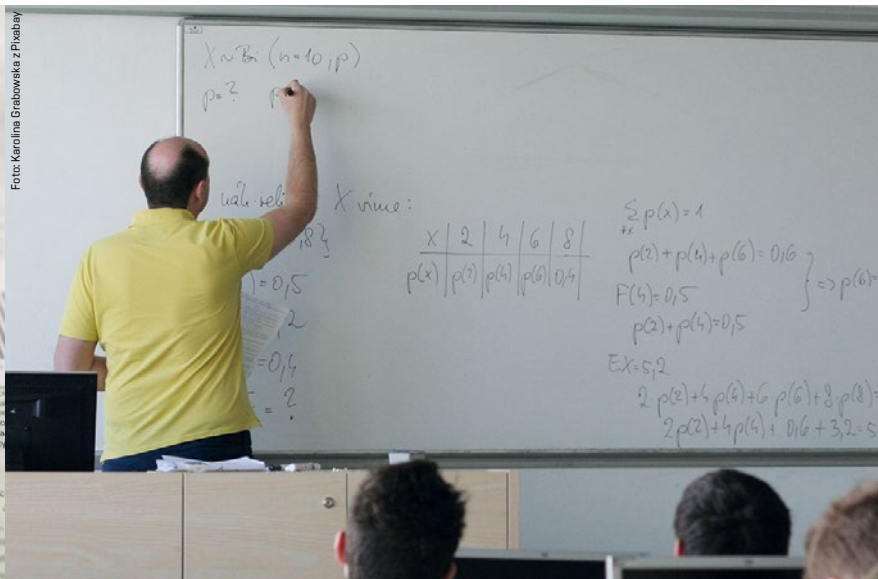 Foto: Karolina Grabowska z Pixabay
X ~ Bi (n=10, p)
p=? p
náh. veli X víme:
,8}
) = 0,5
,2
= 0,4
= ?
x | 2 | 4 | 6 | 8
p(x) | p(2) | p(4) | p(6) | 0,4
∑ p(x) = 1
∀x
p(2) + p(4) + p(6) = 0,6
F(4) = 0,5
p(2) + p(4) = 0,5
} => p(6) =
EX = 5,2
2 p(2) + 4 p(4) + 6 p(6) + 8 p(8) =
2p(2) + 4p(4) + 0,6 + 3,2 = 5